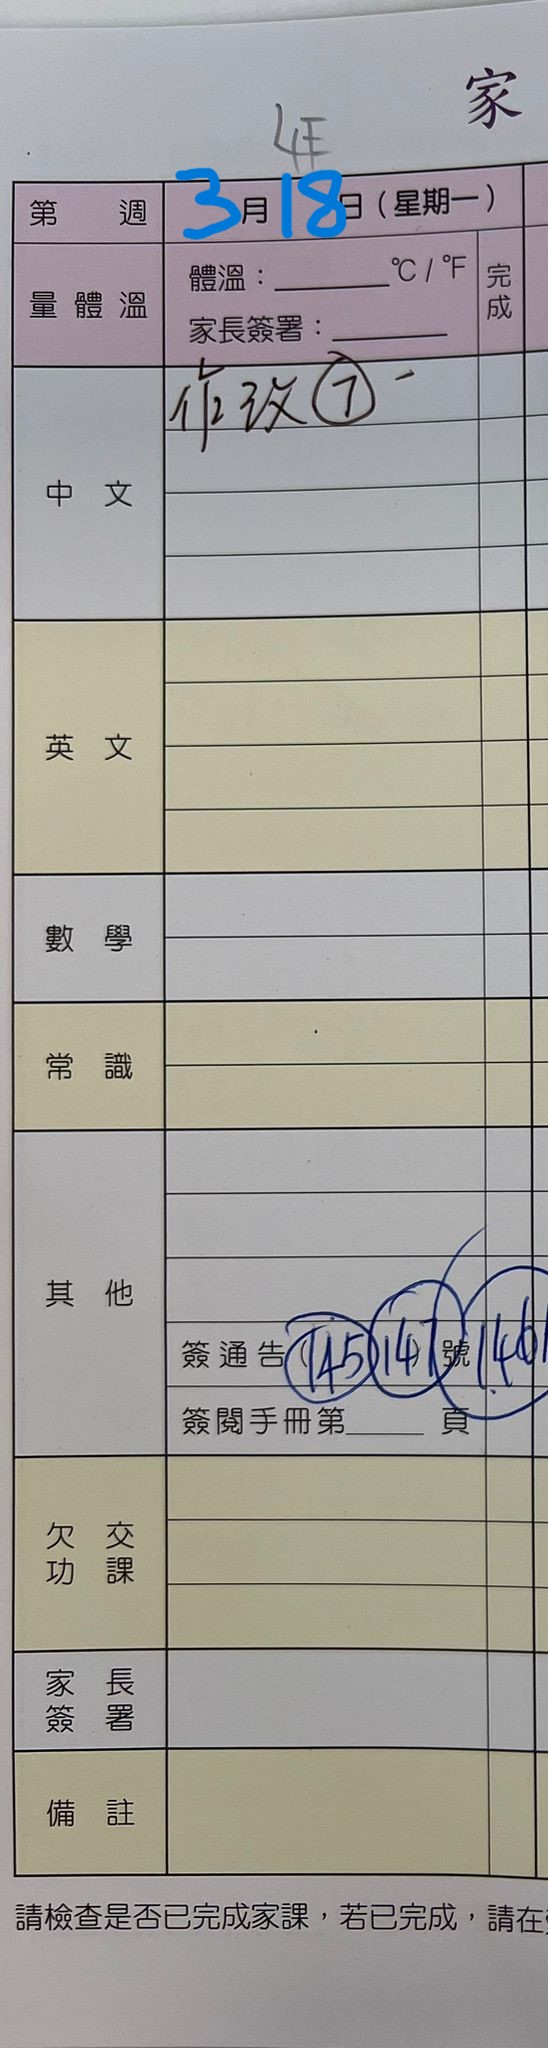 家
4F
第 週 3月18日(星期一)
量體溫 體溫:______℃/℉ 完成
家長簽署:______
中文 作改⑦
英文
數學
常識
其他
簽通告(145)147號 146
簽閱手冊第____頁
欠交功課
家長簽署
備註
請檢查是否已完成家課,若已完成,請在